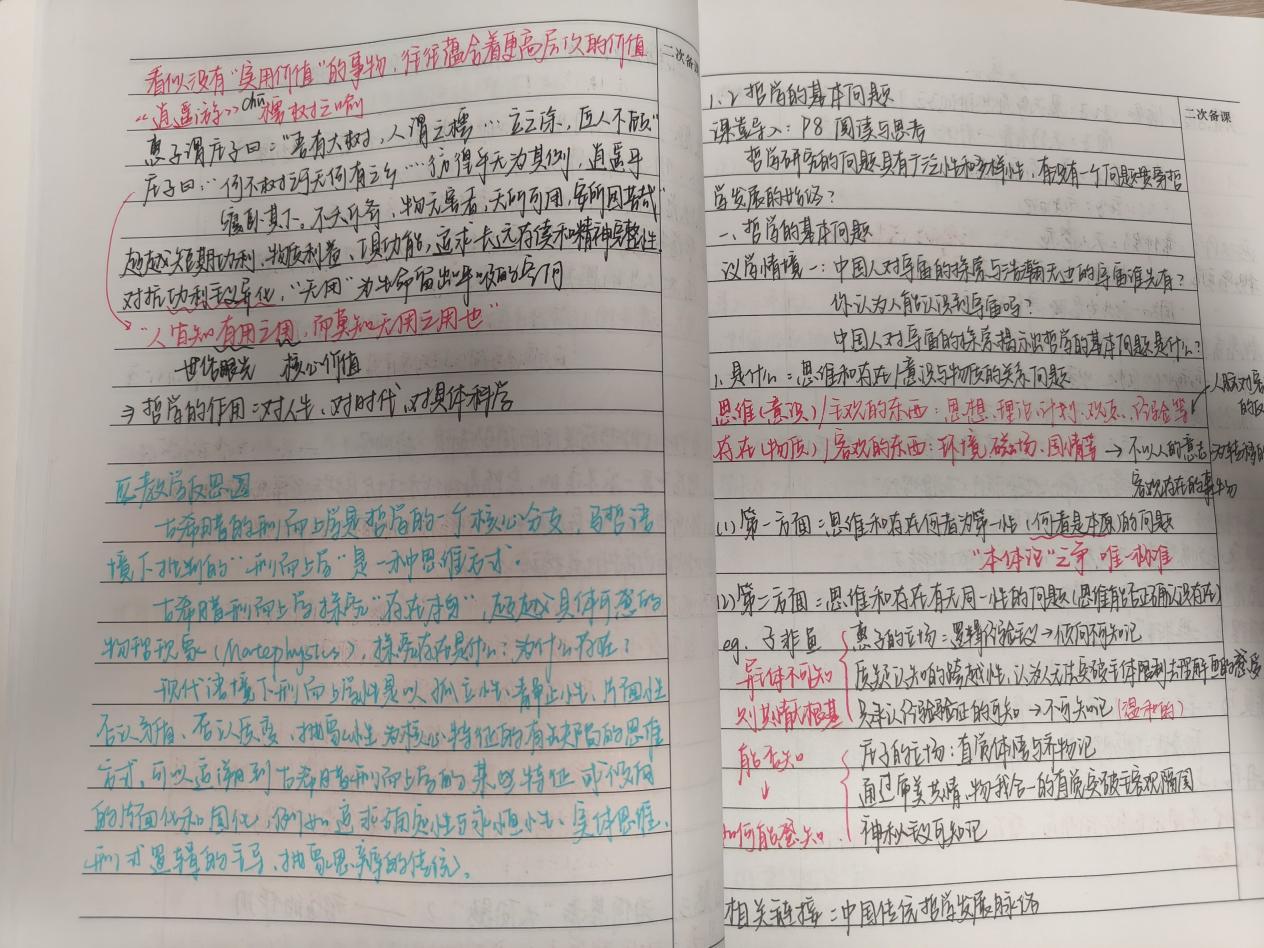 二次备课
看似没有“实用价值”的事物，往往蕴含着更高层次的价值
“逍遥游》 chū 樗树之喻
惠子谓庄子曰：“吾有大树，人谓之樗…立之涂，匠人不顾”
庄子曰：…何不树之于无何有之乡…彷徨乎无为其侧，逍遥乎
寝卧其下。不夭斤斧，物无害者，无所可用，安所困苦哉”
超越短期功利、物质利益、工具功能，追求长远存续和精神完整性
对抗功利主义异化，“无用”为生命留出呼吸的空间
“人皆知有用之用，而莫知无用之用也”
世俗眼光 核心价值
⇒哲学的作用：对人生、对时代、对具体科学
教学反思
古希腊的形而上学是哲学的一个核心分支，与哲语
境下批判的“形而上学”是一种思维方式。
古希腊形而上学探究“存在本身”，超越具体可感的
物理现象（Metephysics），探究存在是什么？为什么存在？
现代语境下形而上学性是以孤立性、静止性、片面性
否认矛盾、否认质变、抽象性为核心特征的有缺陷的思维
方式，可以追溯到古希腊形而上学的某些特征或不良
的片面化和固化，例如追求确定性与永恒性、实体思维、
形式逻辑的主导、抽象思辨的传统。
二次备课
1.2 哲学的基本问题
课堂导入：P8 阅读与思考
哲学研究的问题具有广泛性和多样性，有没有一个问题贯穿哲
学发展的始终？
一、哲学的基本问题
议学情境一：中国人对宇宙的探索与浩瀚无边的宇宙谁先有？
你认为人能认识到宇宙吗？
中国人对宇宙的探索揭示出哲学的基本问题是什么？
1.是什么：思维和存在/意识与物质的关系问题
思维（意识）/主观的东西：思想、理论、计划、观点、经验等
人脑对客
存在（物质）/客观的东西：环境、磁场、国情等→不以人的意志为转移的
客观存在的事物
(1)第一方面：思维和存在何者为第一性（何者是本原）的问题
“本体论”之争 唯一标准
(2)第二方面：思维和存在有无同一性的问题（思维能否正确认识存在）
eg. 子非鱼 惠子的立场：逻辑经验主义→倾向不可知论
异主体不可知 质疑认知的跨越性，认为人无法突破主体限制去理解鱼的感受
则其情大概基 只承认经验验证的可知→不可知论（温和的）
能否知 庄子的立场：直觉体悟与齐物论
↓ 通过审美共情、物我合一的直觉突破主客观隔阂
如何能知 神秘主义可知论
相关链接：中国传统哲学发展脉络